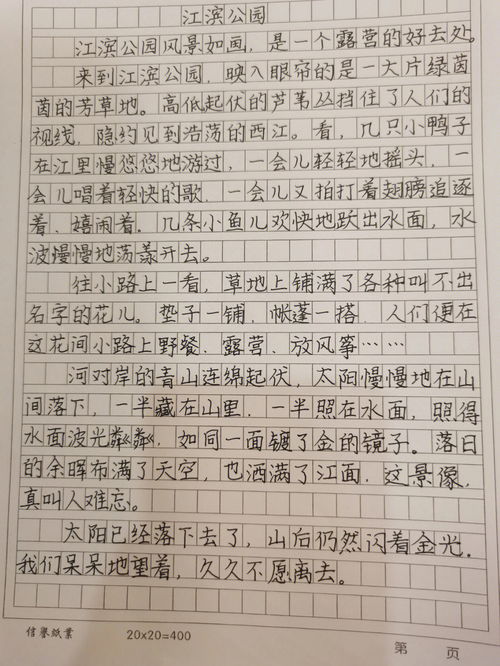 江滨公园
江滨公园风景如画，是一个露营的好去处。
来到江滨公园，映入眼帘的是一大片绿茵
茵的芳草地。高低起伏的芦苇丛挡住了人们的
视线，隐约见到浩荡的西江。看，几只小鸭子
在江里慢悠悠地游过，一会儿轻轻地摇头，一
会儿唱着轻快的歌，一会儿又拍打着翅膀追逐
着、嬉闹着。几条小鱼儿欢快地跃出水面，水
波慢慢地荡漾开去。
往小路上一看，草地上铺满了各种叫不出
名字的花儿。垫子一铺，帐蓬一搭，人们便在
这花间小路上野餐、露营、放风筝……
河对岸的青山连绵起伏，太阳慢慢地在山
间落下，一半藏在山里，一半照在水面，照得
水面波光粼粼，如同一面镀了金的镜子。落日
的余晖布满了天空，也洒满了江面，这景像，
真叫人难忘。
太阳已经落下去了，山后仍然闪着金光，
我们呆呆地望着，久久不愿离去。
信誉纸业 20×20=400
第 页